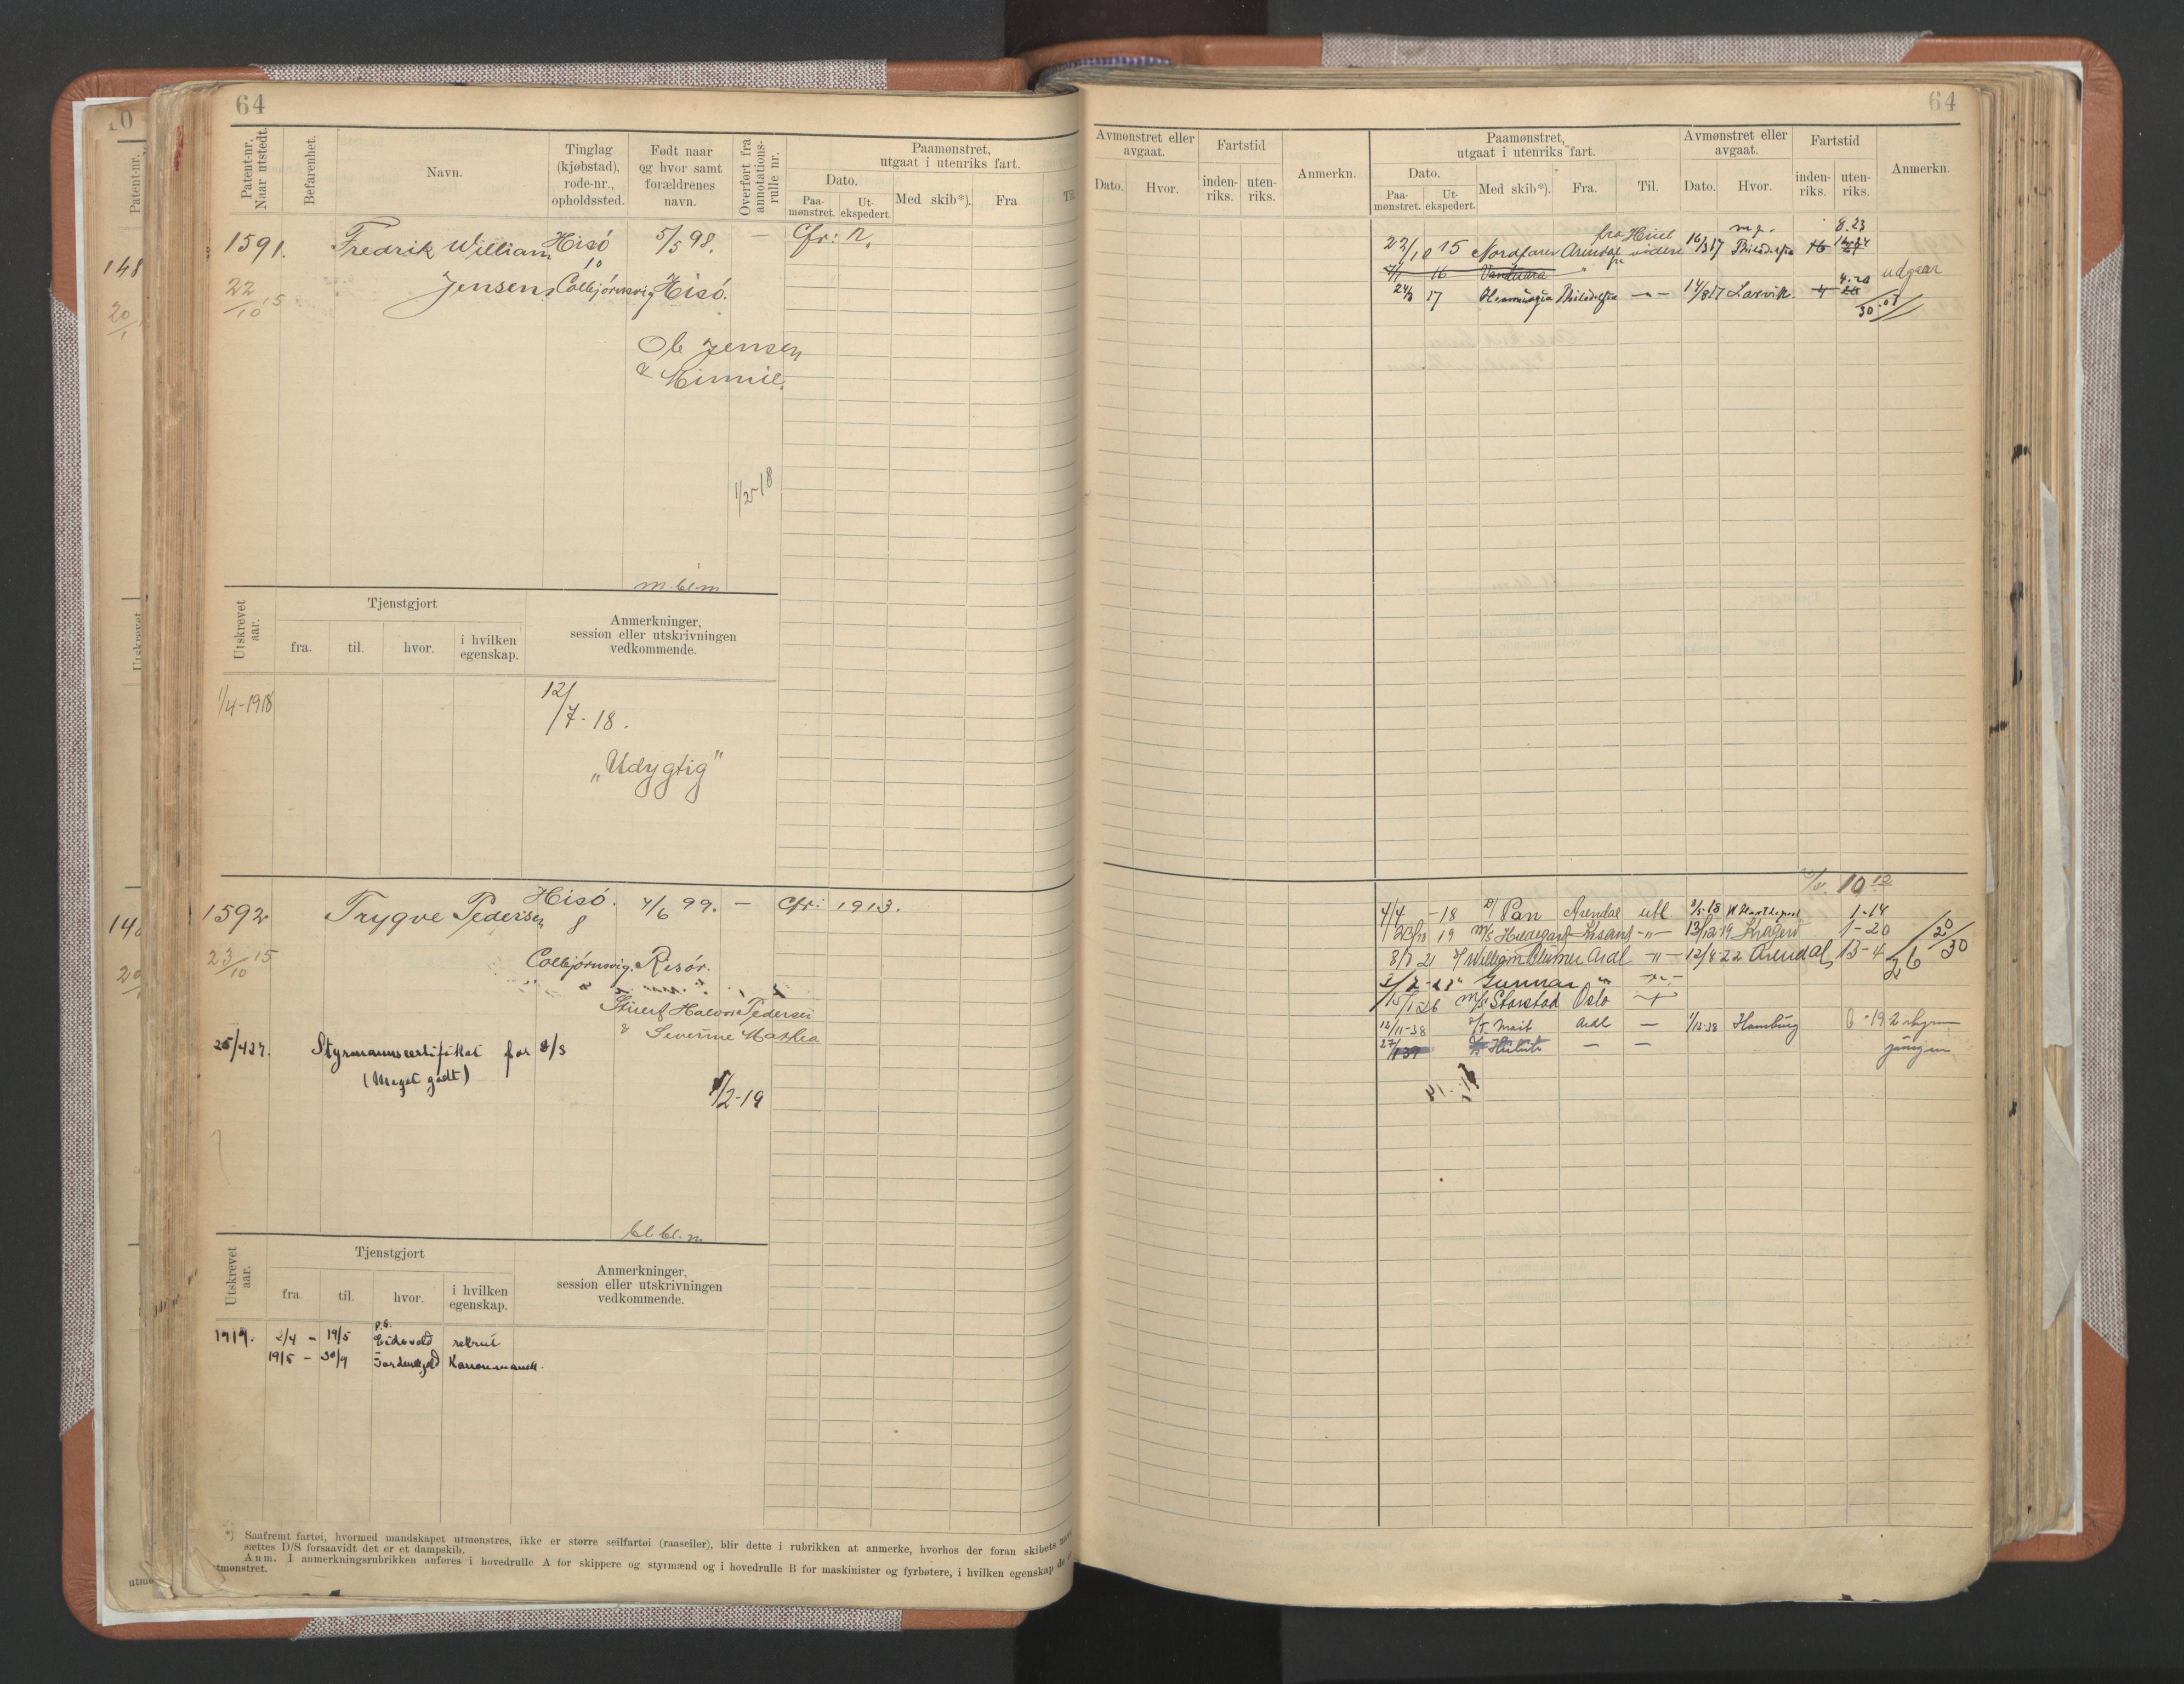 64
Patent-nr. Naar utstedt.
Befarenhet.
Navn.
Tinglag (kjøbstad), rode-nr., opholdssted.
Født naar og hvor samt forældrenes navn.
Overført fra annotations-rulle nr.
Paamønstret, utgaat i utenriks fart.
Dato.
Paa-mønstret.
Ut-ekspedert.
Med skib*).
Fra
Til
1591.
Fredrik William
Hisó
5/5 98.
—
Cfr: n.
22/10 15
Jensen,
10
Colbjórnsvig
Hisó.
Ole Jensen
& Minnie.
1/2-18
m. bl. m
Utskrevet aar.
Tjenstgjort
fra.
til.
hvor.
i hvilken egenskap.
Anmerkninger, session eller utskrivningen vedkommende.
1/4-1918
12/7-18.
„Udygtig"
1592
Trygve Pedersen
Hisó.
8
4/6 99.
—
Cfr: 1913.
23/10 15
Colbjórnsvig.
Risór.
Halvor Pedersen
& Severine Mathea
25/4 27.
Styrmannscertifikat for
(Meget godt)
1/2-19
bl. bl. m
Utskrevet aar.
Tjenstgjort
fra.
til.
hvor.
i hvilken egenskap.
Anmerkninger, session eller utskrivningen vedkommende.
1919.
2/4 – 19/5
P.S. Eidsvold
rekrut
19/5 – 30/9
Tordenskjold
Kanonmands.
*) Saafremt fartøi, hvormed mandskapet utmønstres, ikke er større seilfartøi (raaseiler), blir dette i rubrikken at anmerke, hvorhos der foran skibets navn
sættes D/S forsaavidt det er et dampskib.
Anm. I anmerkningsrubrikken anføres i hovedrulle A for skippere og styrmænd og i hovedrulle B for maskinister og fyrbøtere, i hvilken egenskap de er
utmønstret.
64
Avmønstret eller avgaat.
Dato.
Hvor.
Fartstid
inden-riks.
uten-riks.
Anmerkn.
Paamønstret, utgaat i utenriks fart.
Dato.
Paa-mønstret.
Ut-ekspedert.
Med skib*).
Fra.
Til.
Avmønstret eller avgaat.
Dato.
Hvor.
Fartstid
inden-riks.
uten-riks.
Anmerkn.
8.23
22/10 15 Nordfarer Arendal videre 16/3 17 Philadelfia
7/1 16
udgaar
24/3 17 Philadelfia — — 14/8 17 Larvik.
4.20
30.07
10 12
4/4 - 18 D/ Pan Arendal utl. 1-14
19 M/S Hildegard — " — 13/12 19 Kragerø 1-20
8/7 21 William Blumer Ardl — " — 12/8 22 Arendal, 13-4
26
20/30
Gunnar
15/1 26 M/S Storstad Oslo
12/11-38 Mait Ardl — 1/12-38 Hamburg 0-19 2 styrm
27/1 39 — —